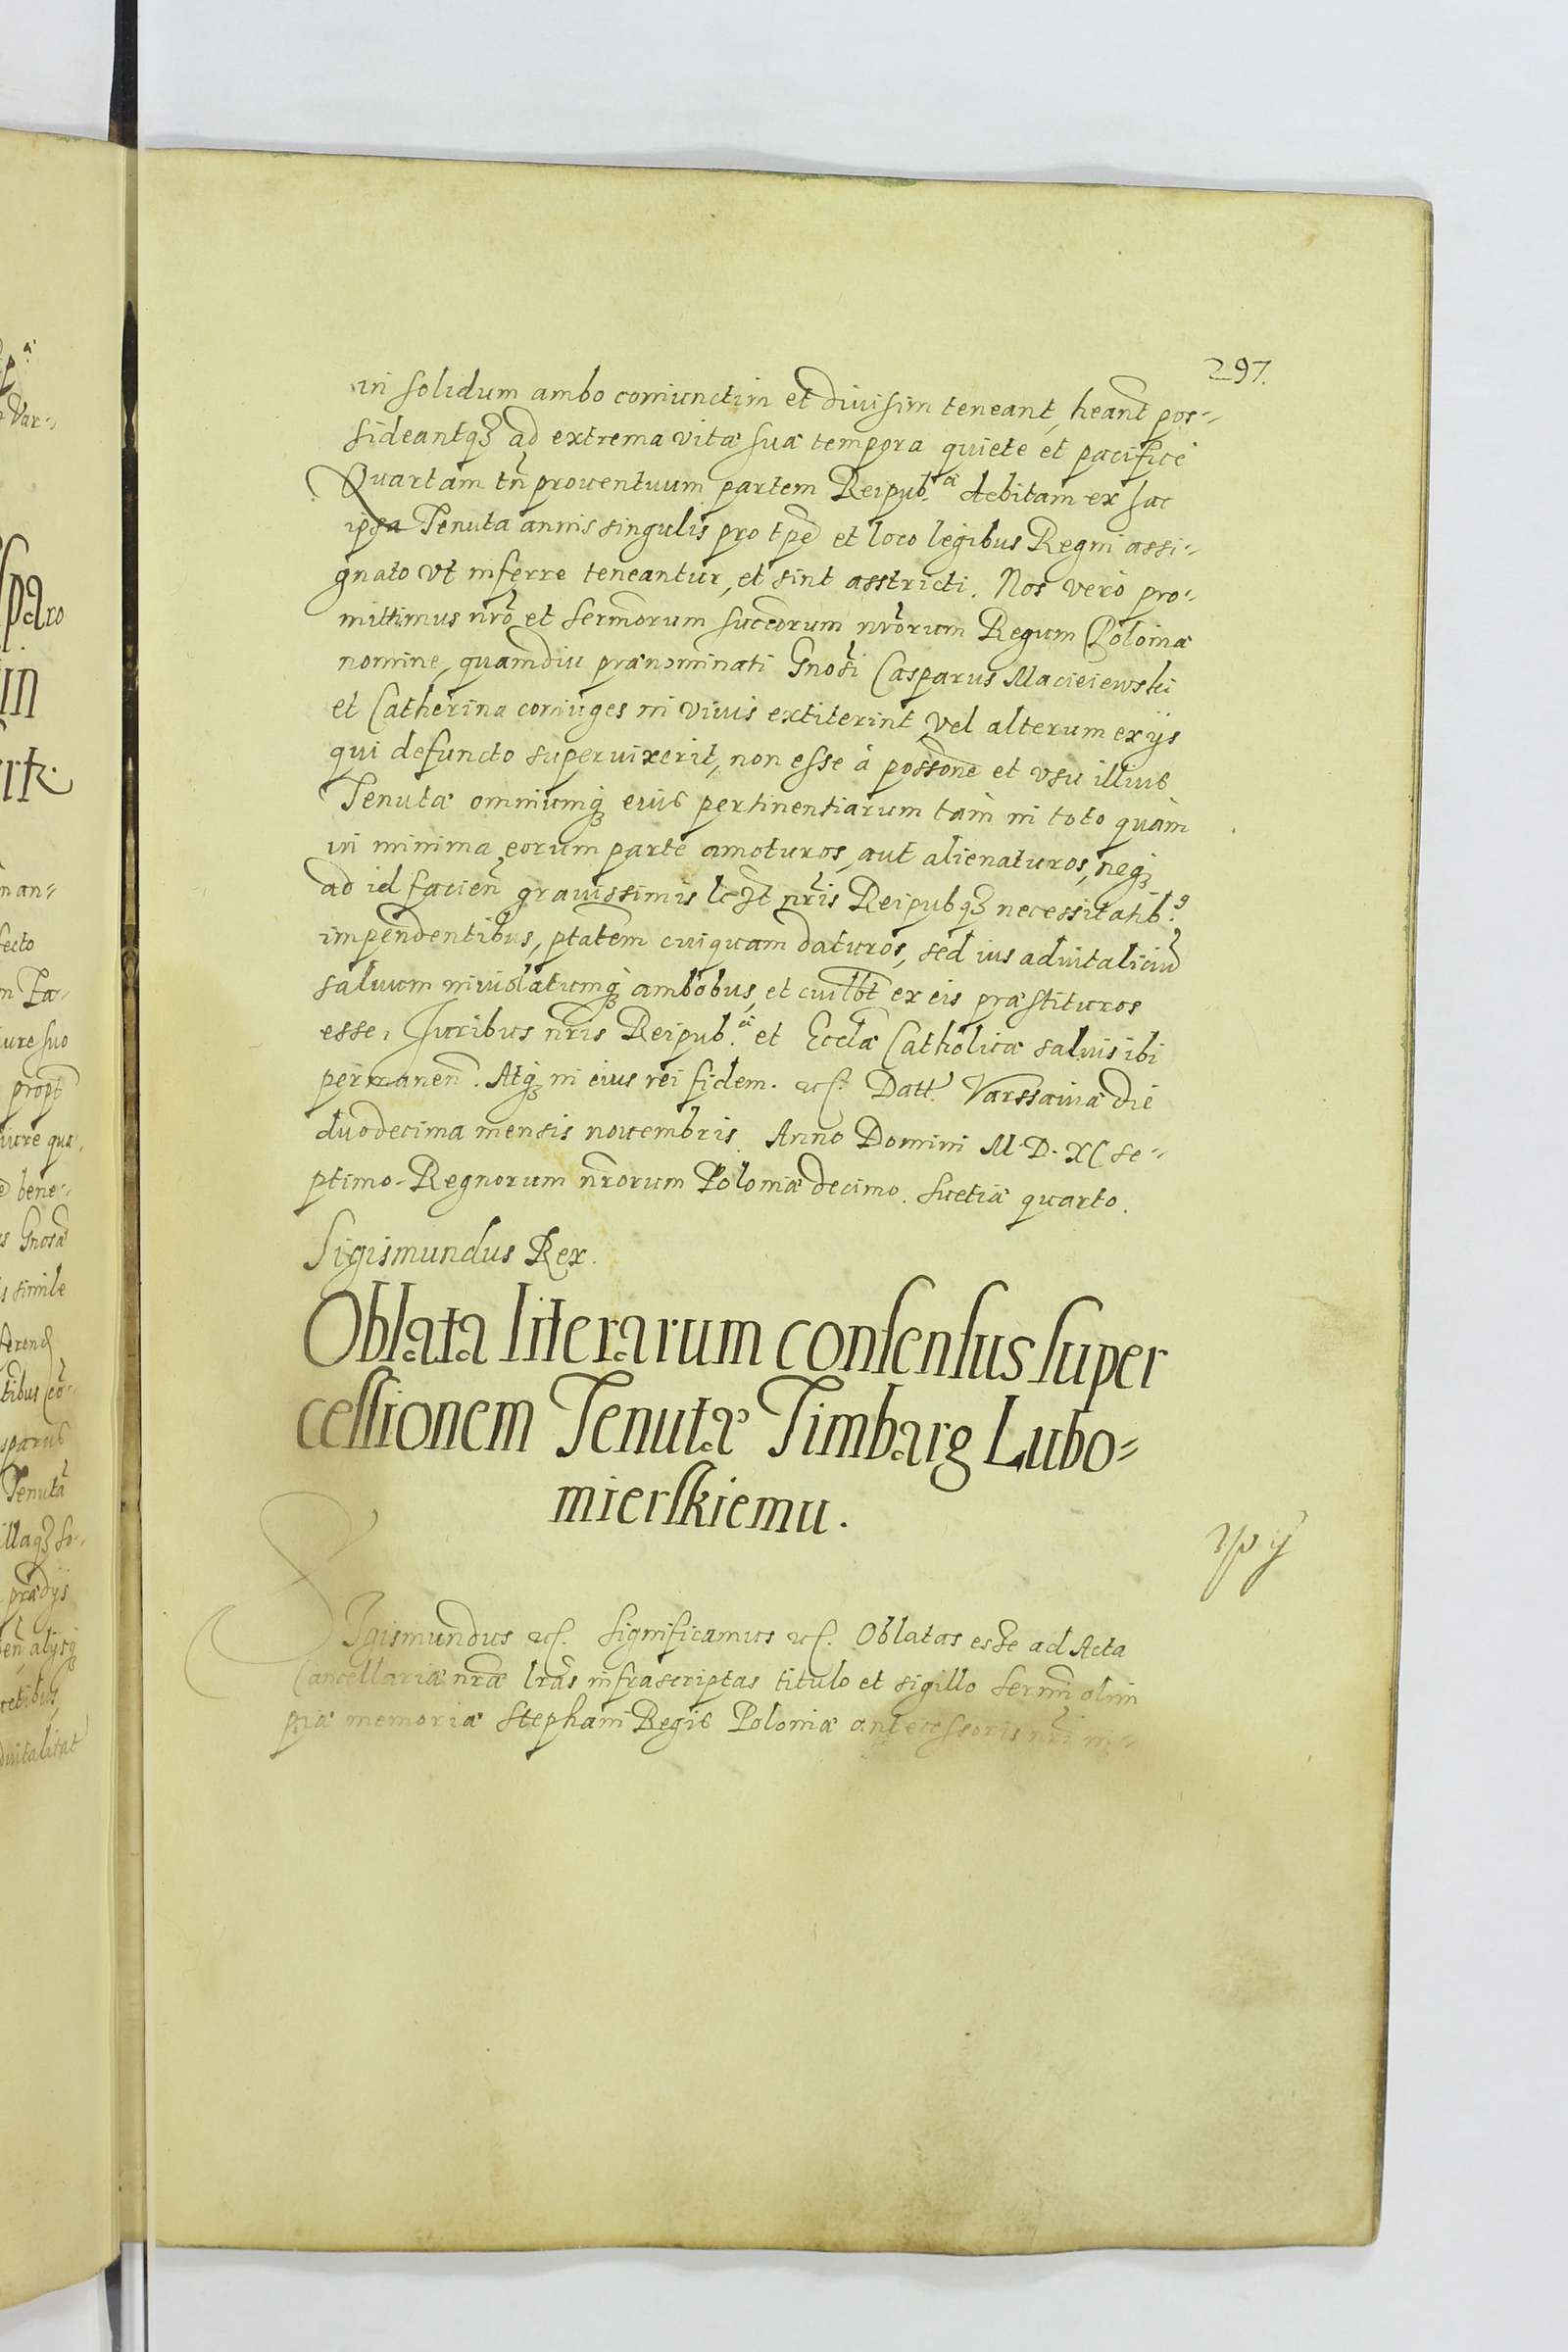 297.
in solidum ambo coniunctim et diuisim teneant, heant pos-
sideantq3 ad extrema vitæ suæ tempora quiete et pacifice
Quartam tñ prouentuum partem Reipub.æ debitam ex hac
ipsa Tenuta annis singulis pro tpe et loco legibus Regni assi-
gnato vt inferre teneantur, et sint asstricti. Nos vero pro-
mittimus nro et sermorum succorum nrorum Regum Poloniæ
nomine, quamdiu prænominati Gnosi Casparus Macieiewski
et Catherina coniuges in viuis extiterint, vel alterum ex ijs
qui defuncto superuixerit, non esse à possone et vsu illius
Tenutæ omniumq3 eius pertinentiarum tam in toto quàm
in minima eorum parte amoturos, aut alienaturos, neq3
ad id facien gravissimis nris Reipubq3 necessitatib.9
impendentibus, ptatem cuiquam daturos, sed ius aduitaliciũ
saluum inuiolatumq3 ambobus, et cuilbt ex eis præstituros
esse, Juribus nris Reipub.æ et Ecclæ Catholicæ saluis ibi
permanen. Atq3 in eius rei fidem. etc. Datt. Varssauiæ die
duodecima mensis nouembris. Anno Domini M.D.XC se-
ptimo. Regnorum nrorum Poloniæ decimo. Suetiæ quarto.
Sigismundus Rex.
Oblata literarum consensus super
cessionem Tenutæ Timbarg Lubo=
mierskiemu.
Sigismundus etc. Significamus etc. Oblatas esse ad Acta
Cancellariæ nræ lras infrascriptas titulo et sigillo sermi olim
piæ memoriæ Stephani Regis Poloniæ antecessoris nri in-